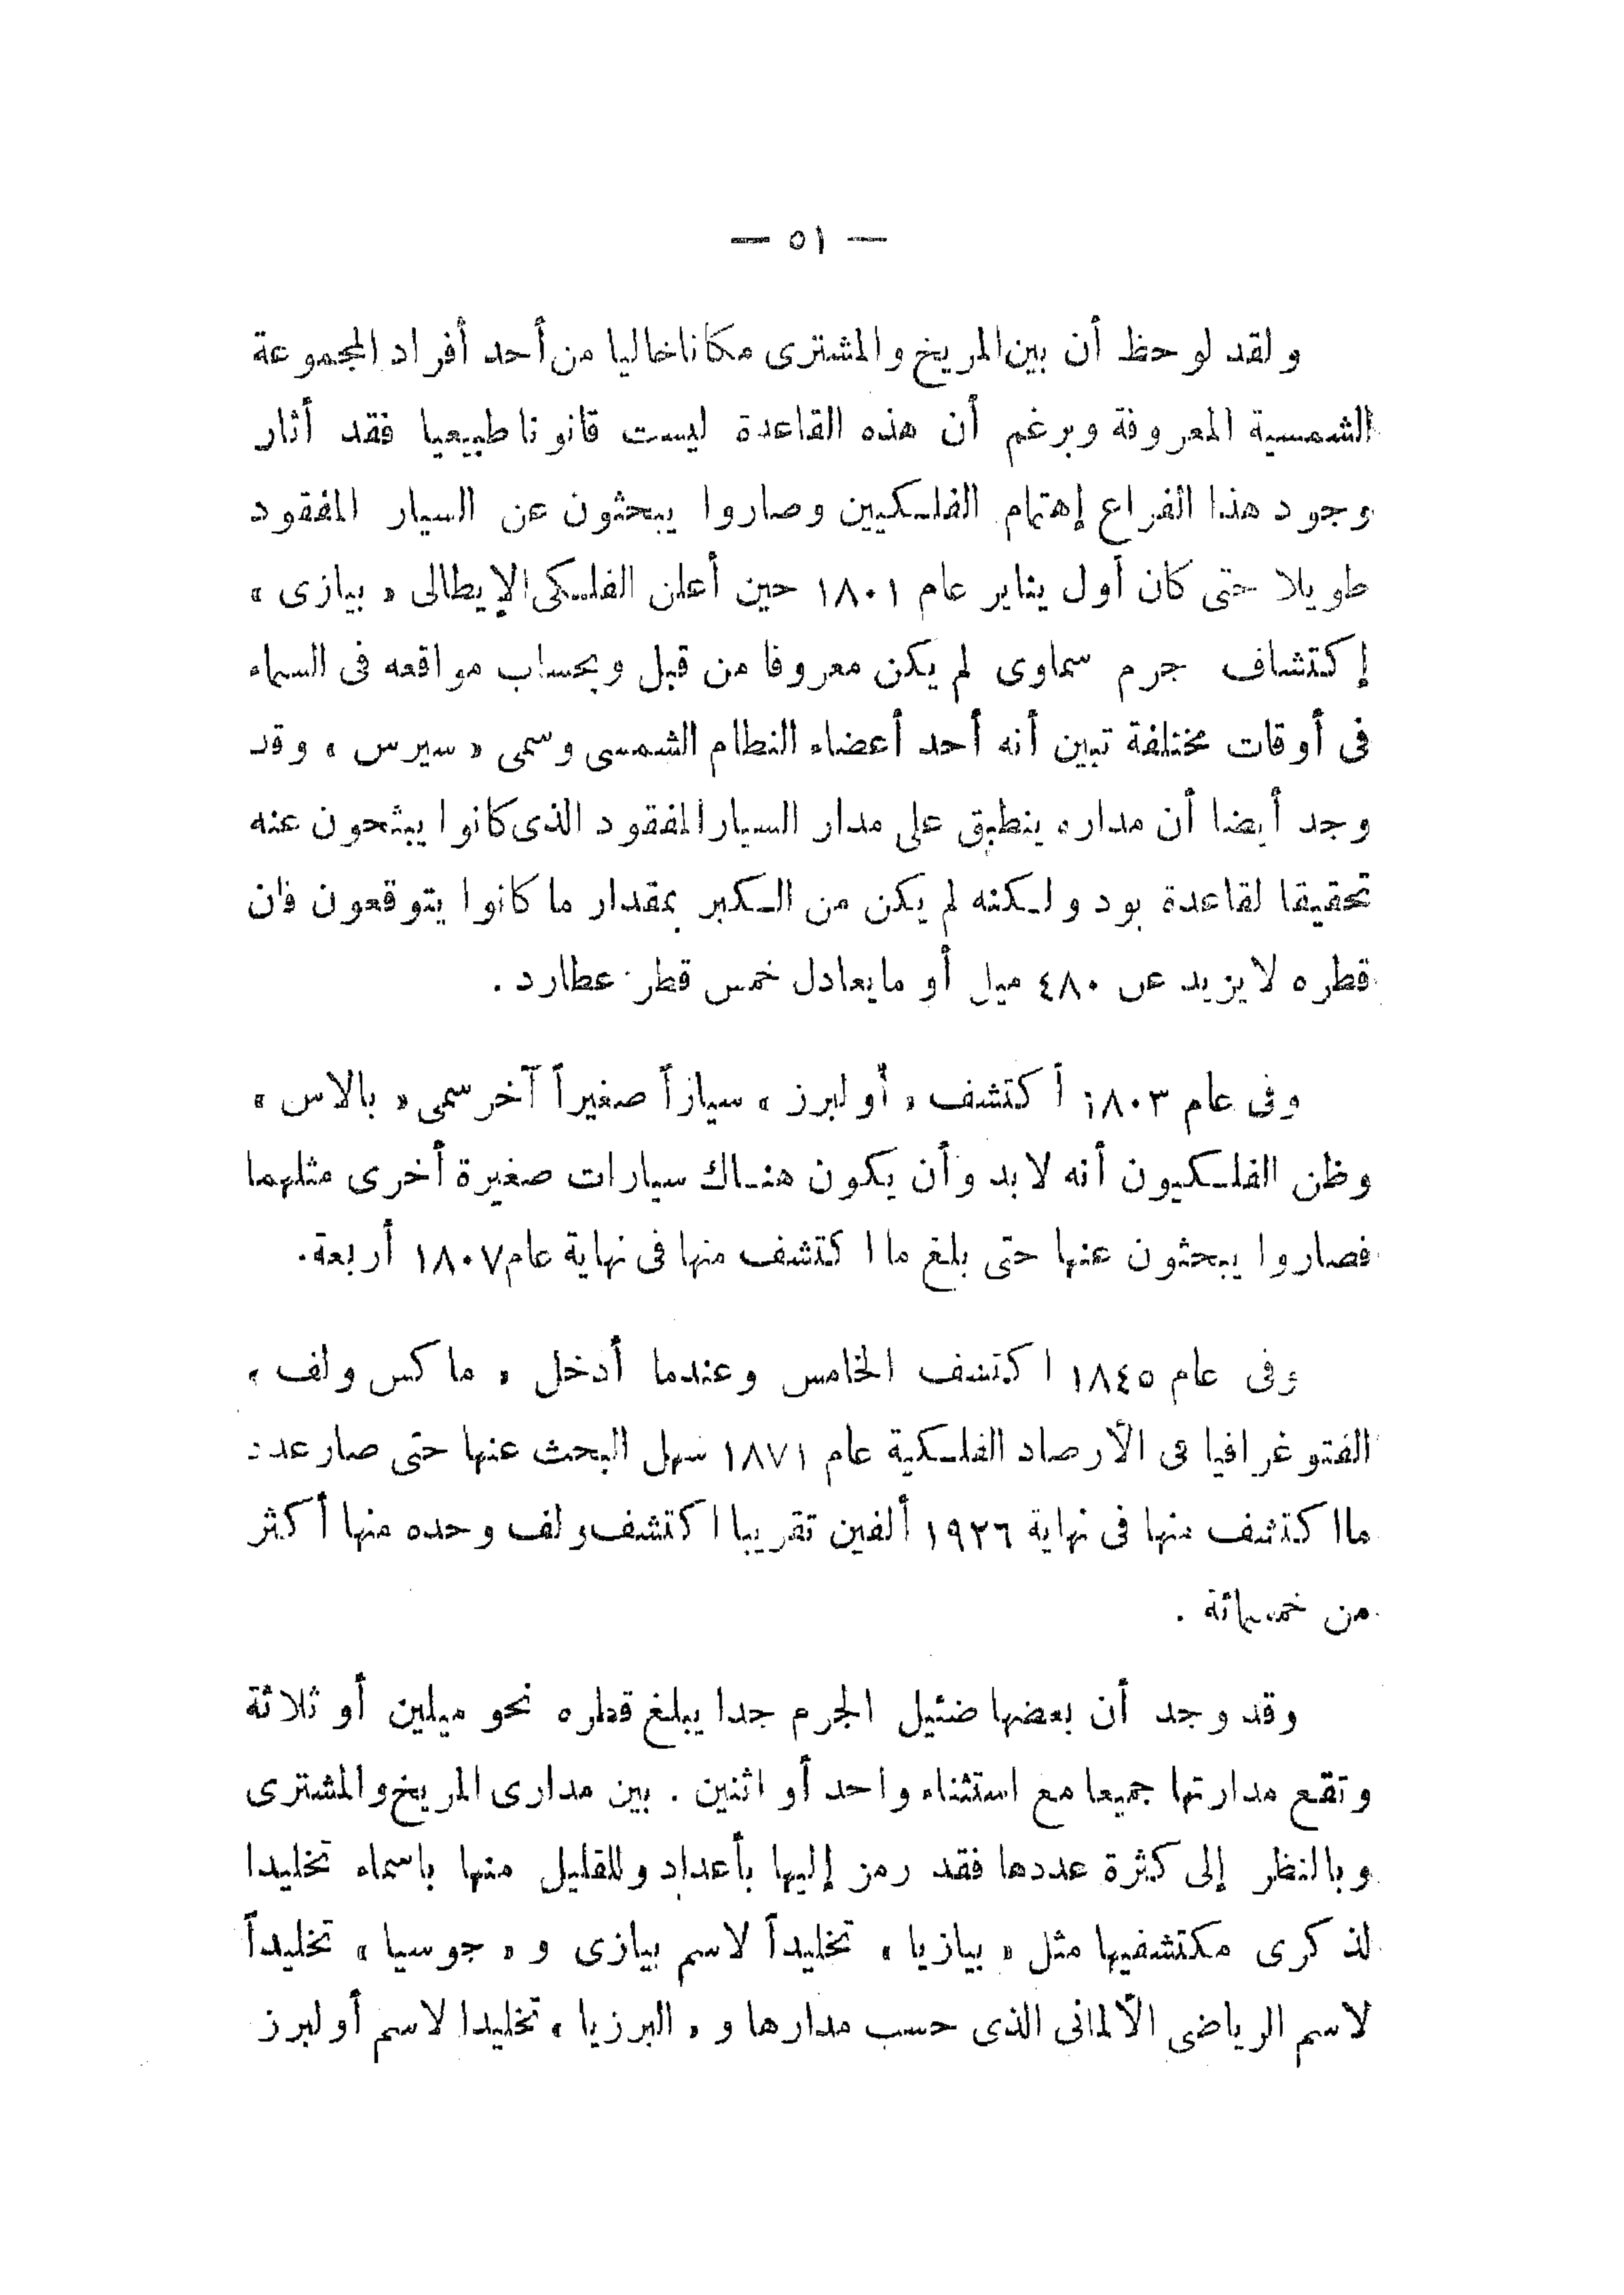 — ٥١ —
ولقد لوحظ أن بين المريخ والمشترى مكانا خاليا من أحد أفراد المجموعة
الشمسية المعروفة وبرغم أن هذه القاعدة ليست قانونا طبيعيا فقد أثار
وجود هذا الفراغ إهتمام الفلكيين وصاروا يبحثون عن السيار المفقود
طويلا حتى كان أول يناير عام ١٨٠١ حين أعلن الفلكى الإيطالى « بيازى »
إكتشاف جرم سماوى لم يكن معروفا من قبل وبحساب مواقعه فى السماء
فى أوقات مختلفة تبين أنه أحد أعضاء النظام الشمسى وسمى « سيرس » وقد
وجد أيضا أن مداره ينطبق على مدار السيار المفقود الذى كانوا يبثحون عنه
تحقيقا لقاعدة بود ولكنه لم يكن من الكبر بمقدار ما كانوا يتوقعون فان
قطره لا يزيد عن ٤٨٠ ميل أو مايعادل خمس قطر عطارد .
وفى عام ١٨٠٣ أكتشف « أولبرز » سيازاً صغيراً آخر سمى « بالاس »
وظن الفلكيون أنه لابد وأن يكون هناك سيارات صغيرة أخرى مثلهما
فصاروا يبحثون عنها حتى بلغ ما اكتشف منها فى نهاية عام ١٨٠٧ أربعة.
وفى عام ١٨٤٥ اكتشف الخامس وعندما أدخل « ماكس ولف »
الفتوغرافيا فى الأرصاد الفلكية عام ١٨٧١ سهل البحث عنها حتى صار عدد
ما اكتشف منها فى نهاية ١٩٢٦ ألفين تقريبا اكتشف ولف وحده منها أكثر
من خمسمائة .
وقد وجد أن بعضها ضئيل الجرم جدا يبلغ قطره نحو ميلين أو ثلاثة
وتقع مدارتها جميعا مع استثناء واحد أو اثنين . بين مدارى المريخ والمشترى
وبالنظر إلى كثرة عددها فقد رمز إليها بأعداد وللقليل منها باسماء تخليدا
لذكرى مكتشفيها مثل « بيازيا » تخليداً لاسم بيازى و « جوسيا » تخليداً
لاسم الرياضى الألمانى الذى حسب مدارها و « البرزيا » تخليدا لاسم أولبرز